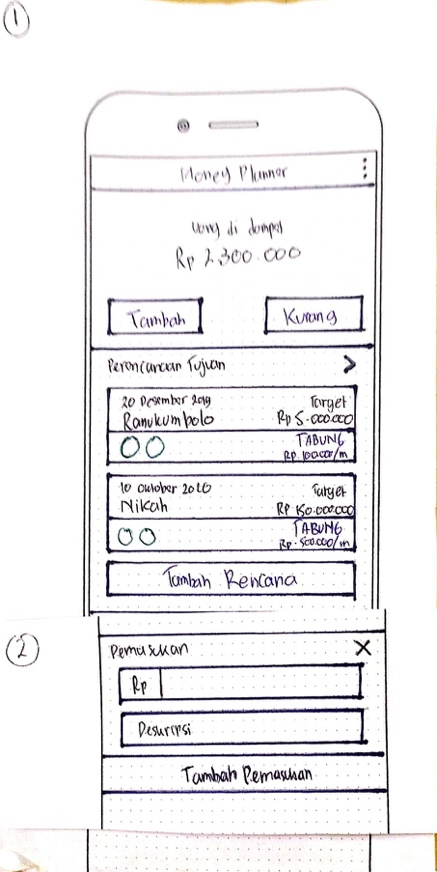 1
Money Planner
Uang di dompet
Rp 2.300.000
Tambah
Kurang
Perencanaan Tujuan >
20 Desember 2019
Target
Ranukumbolo
Rp 5.000.000
TABUNG
Rp. 100.000/m
10 Oktober 2020
Target
Nikah
Rp 150.000.000
TABUNG
Rp. 500.000/m
Tambah Rencana
2
Pemasukan X
Rp
Deskripsi
Tambah Pemasukan